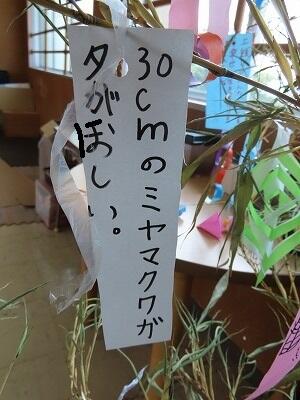 30cmのミヤマクワガ
タがほしい。